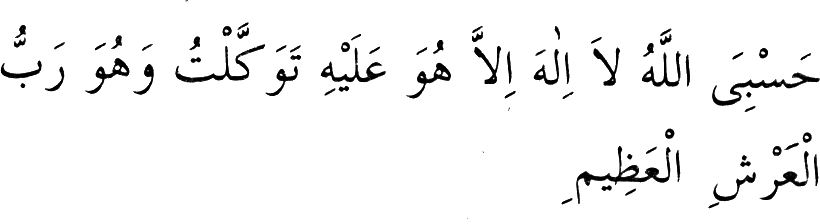 حَسْبِىَ اللَّهُ لاَ اِلٰهَ اِلاَّ هُوَ عَلَيْهِ تَوَكَّلْتُ وَهُوَ رَبُّ
الْعَرْشِ الْعَظِيمِ